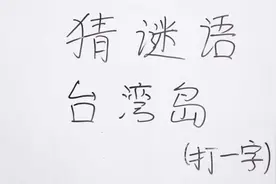 猜谜语
台湾岛
(打一字)